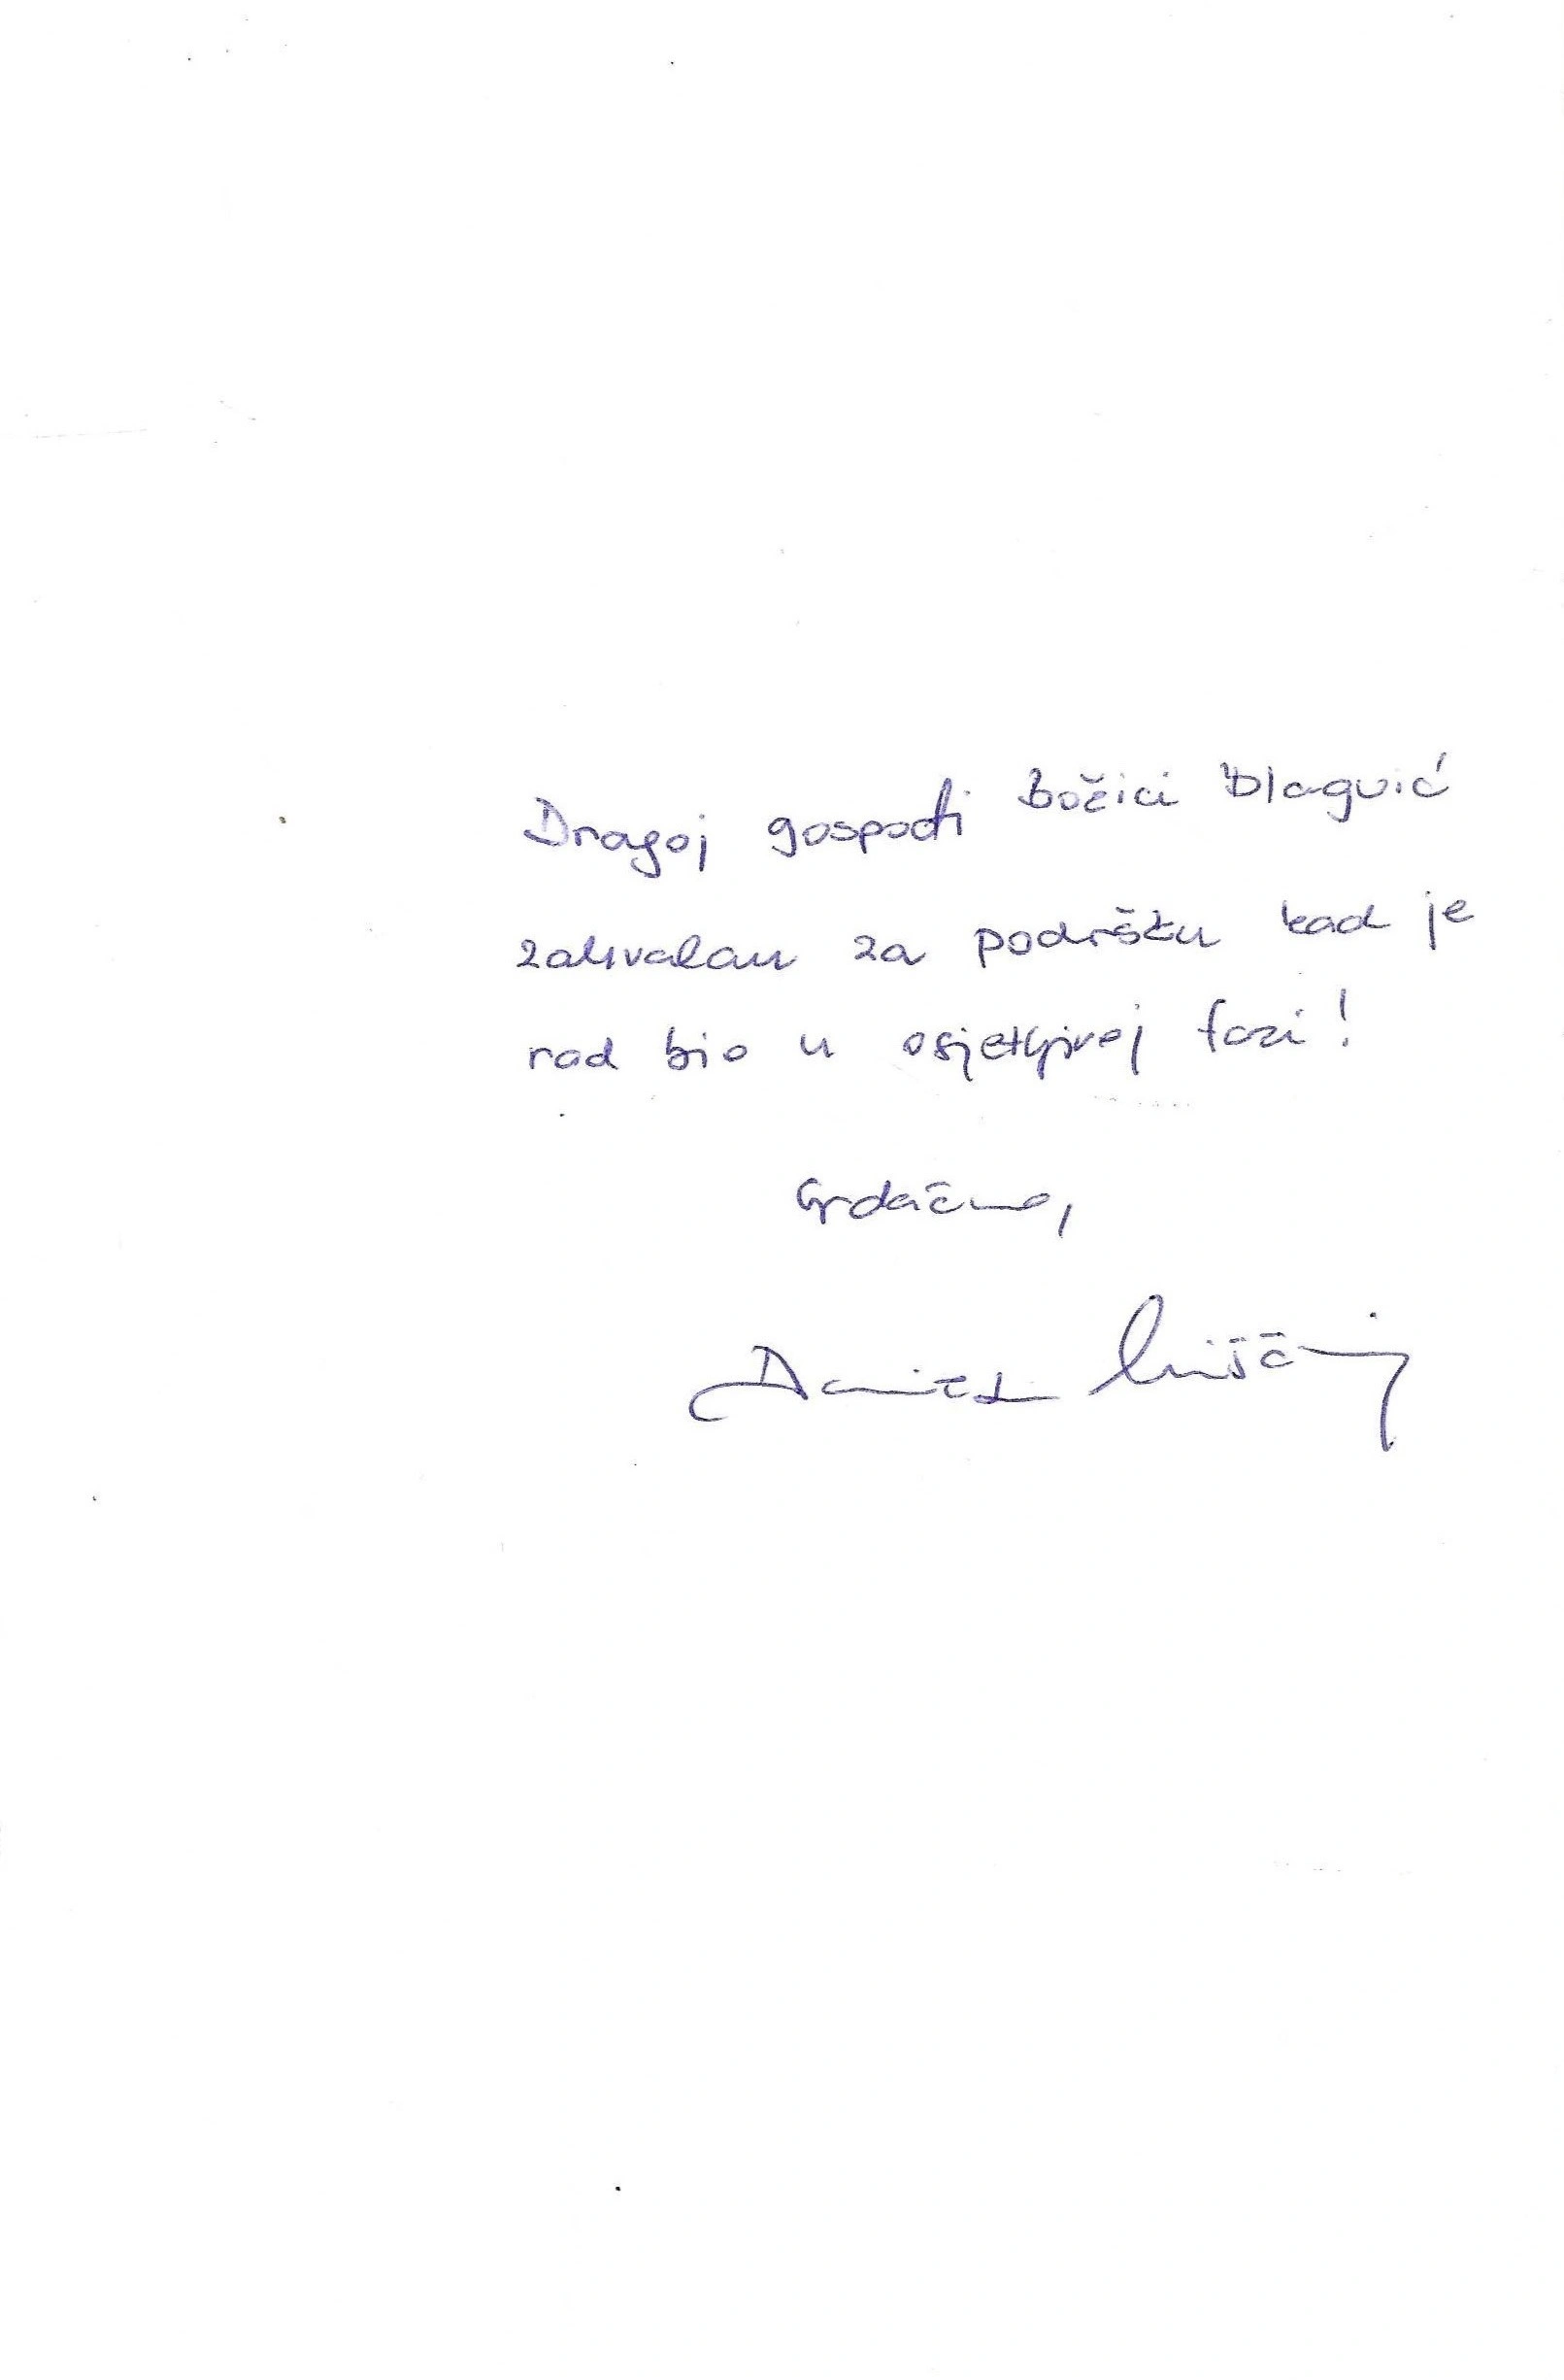 Dragoj gospođi Božici Blagvić
zahvalan za podršku kad je
rad bio u osjetljivoj fazi!
Srdačno,
Daniel Miščin